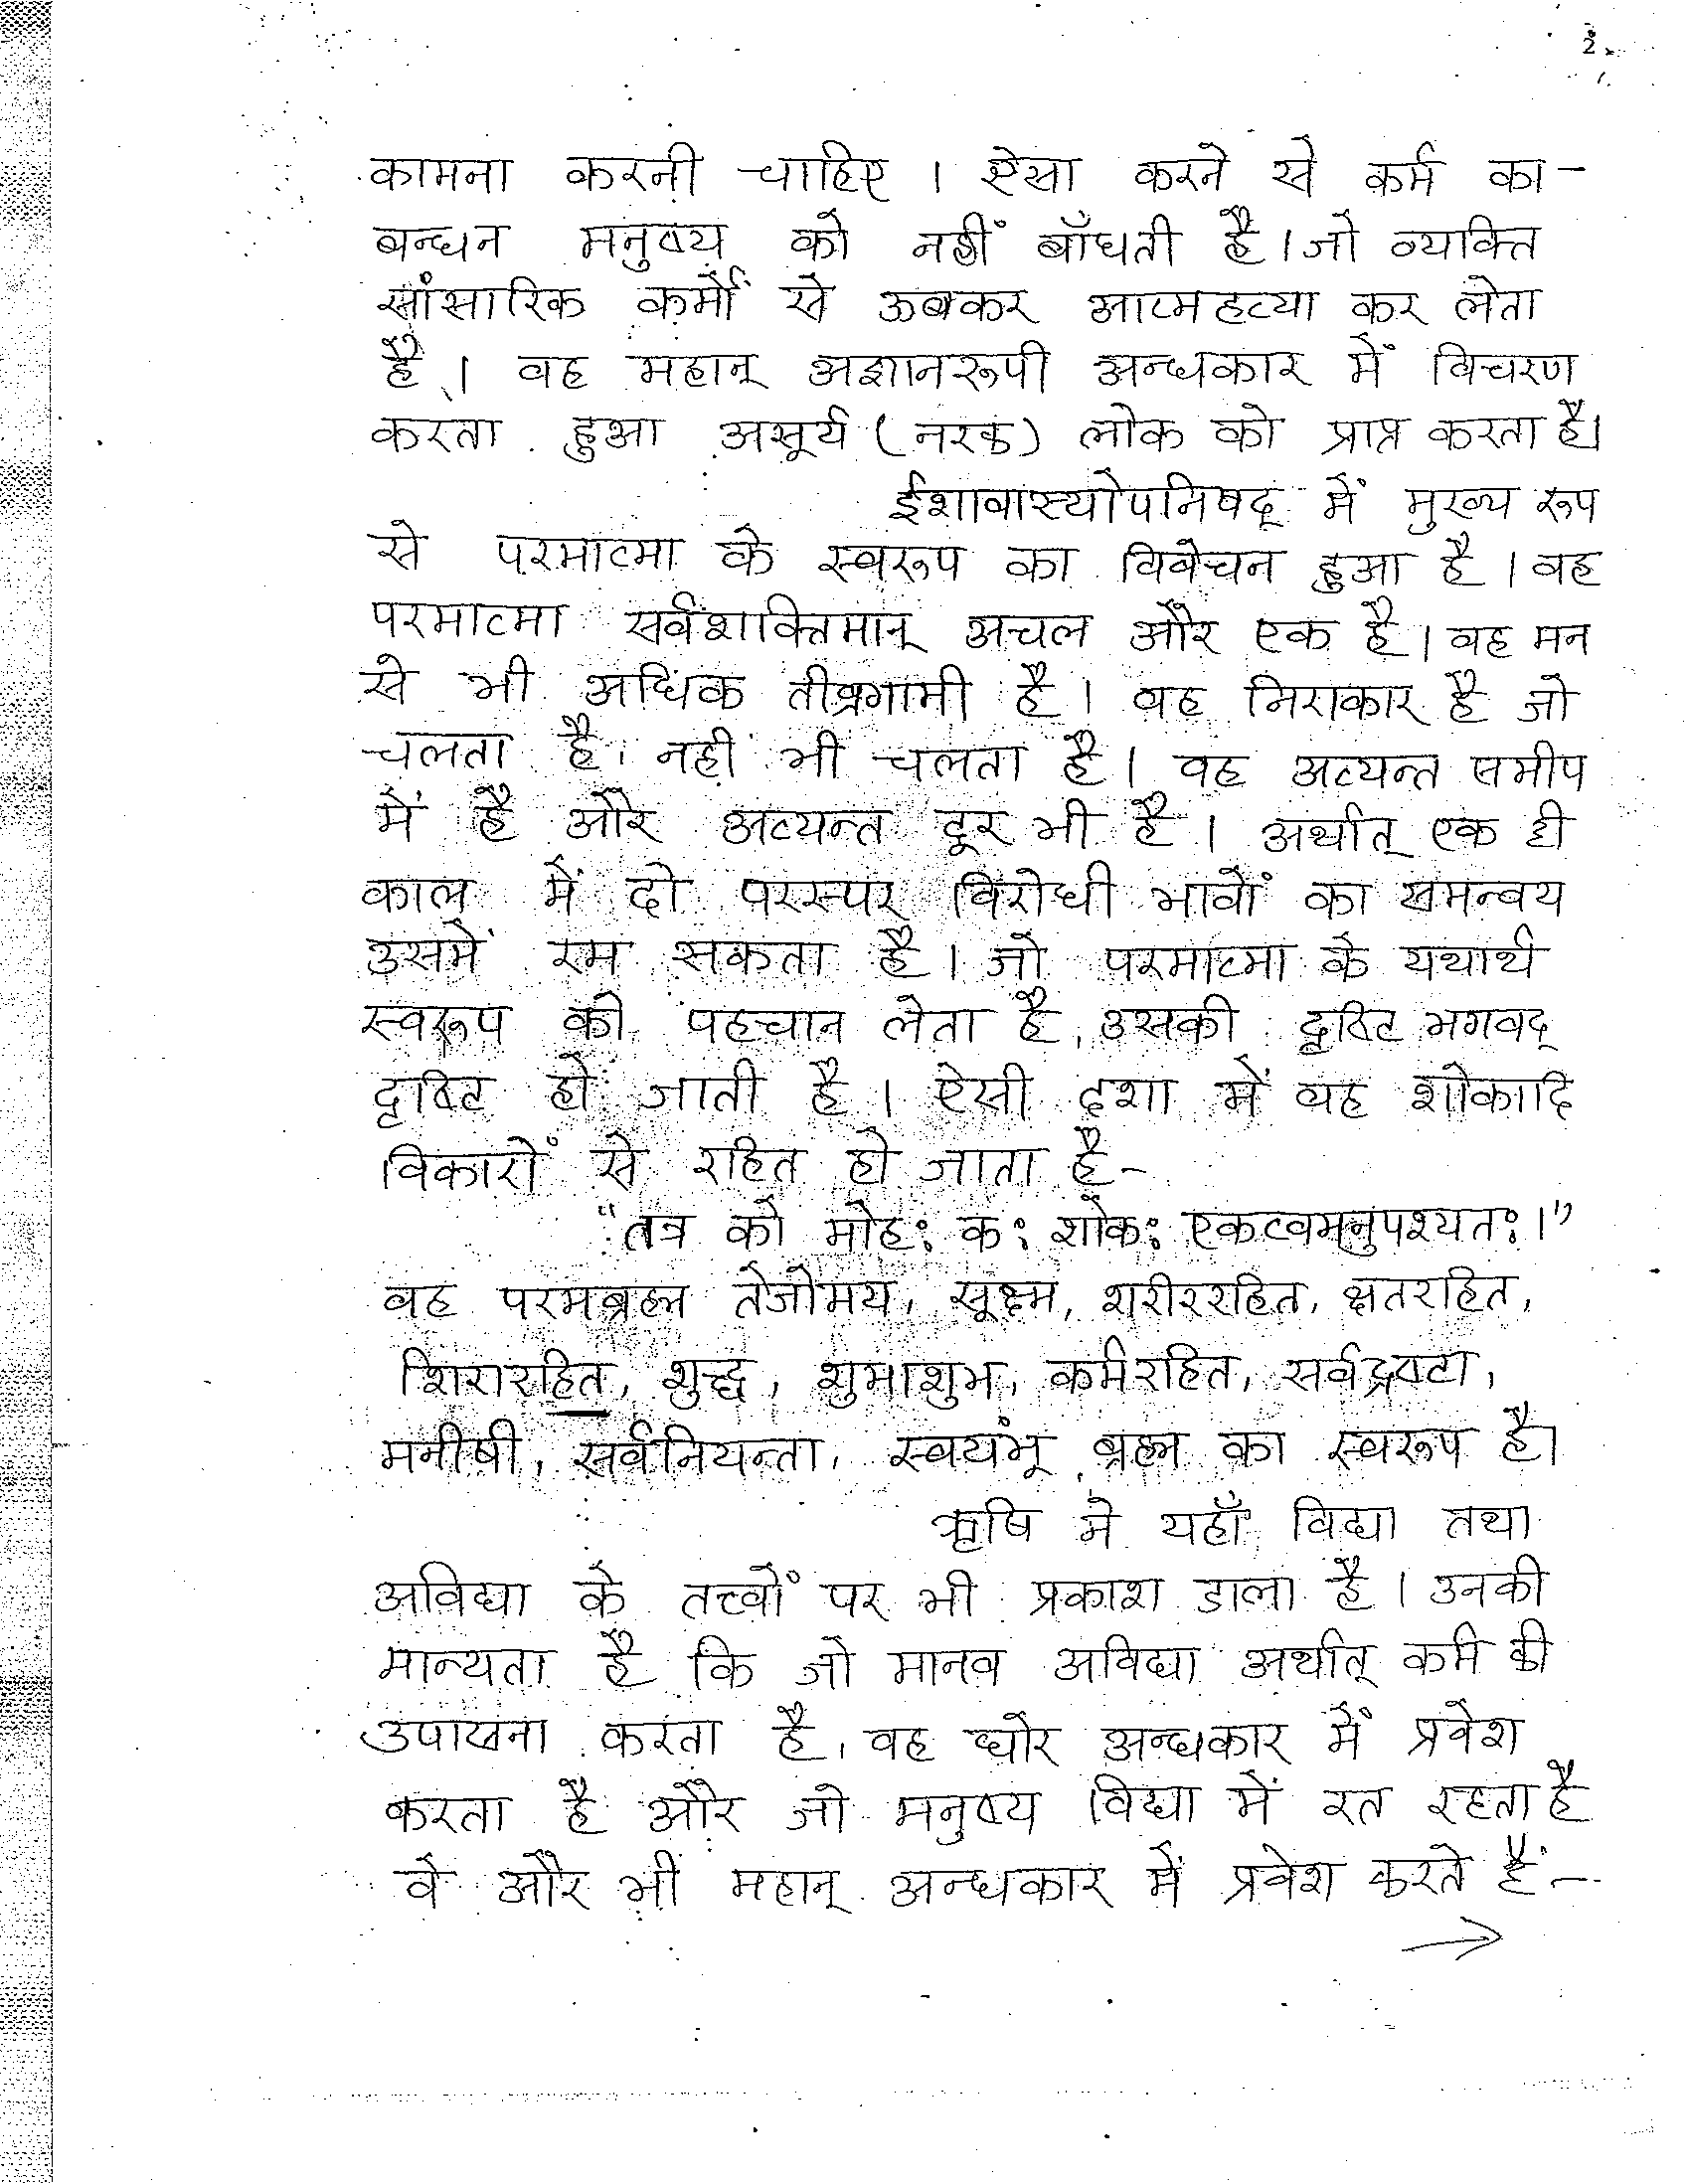 2
कामना करनी चाहिए । ऐसा करने से कर्म का-
बन्धन मनुष्य को नहीं बाँधती है। जो व्यक्ति
सांसारिक कर्मों से ऊबकर आत्महत्या कर लेता
है । वह महान् अज्ञानरूपी अन्धकार में विचरण
करता हुआ असूर्य (नरक) लोक को प्राप्त करता है।
ईशावास्योपनिषद् में मुख्य रूप
से परमात्मा के स्वरूप का विवेचन हुआ है । वह
परमात्मा सर्वशक्तिमान् अचल और एक है । वह मन
से भी अधिक तीव्रगामी है । वह निराकार है जो
चलता है, नहीं भी चलता है । वह अत्यन्त समीप
में है और अत्यन्त दूर भी है । अर्थात् एक ही
काल में दो परस्पर विरोधी भावों का समन्वय
उसमें रम सकता है । जो परमात्मा के यथार्थ
स्वरूप को पहचान लेता है, उसकी दृष्टि भगवद्
दृष्टि हो जाती है । ऐसी दशा में वह शोकादि
विकारों से रहित हो जाता है-
"तत्र को मोहः कः शोकः एकत्वमनुपश्यतः ।"
वह परमब्रह्म तेजोमय, सूक्ष्म, शरीररहित, क्षतरहित,
शिरारहित, शुद्ध, शुभाशुभ, कर्मरहित, सर्वद्रष्टा,
मनीषी, सर्वनियन्ता, स्वयंभू ब्रह्म का स्वरूप है।
ऋषि ने यहाँ विद्या तथा
अविद्या के तत्त्वों पर भी प्रकाश डाला है । उनकी
मान्यता है कि जो मानव अविद्या अर्थात् कर्म की
उपासना करता है, वह घोर अन्धकार में प्रवेश
करता है और जो मनुष्य विद्या में रत रहता है
वे और भी महान् अन्धकार में प्रवेश करते हैं-
→